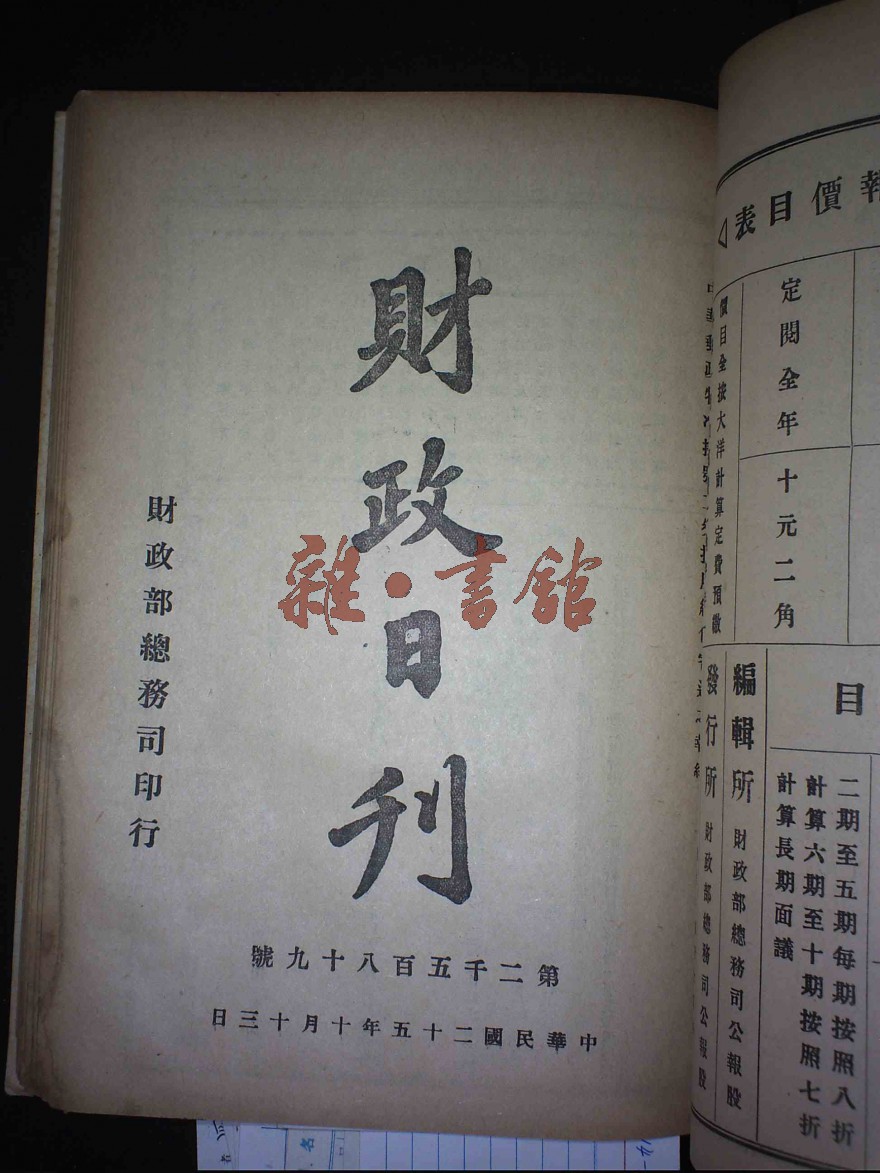 財政日刊
第二千五百八十九號
中華民國二十五年十月十三日
財政部總務司印行
雜·書館
價目表
定閱全年
十元二角
價目全按大洋計算定費預繳
目
二期至五期每期按照八折
計算六期至十期按照七折
計算長期面議
編輯所 財政部總務司公報股
發行所 財政部總務司公報股